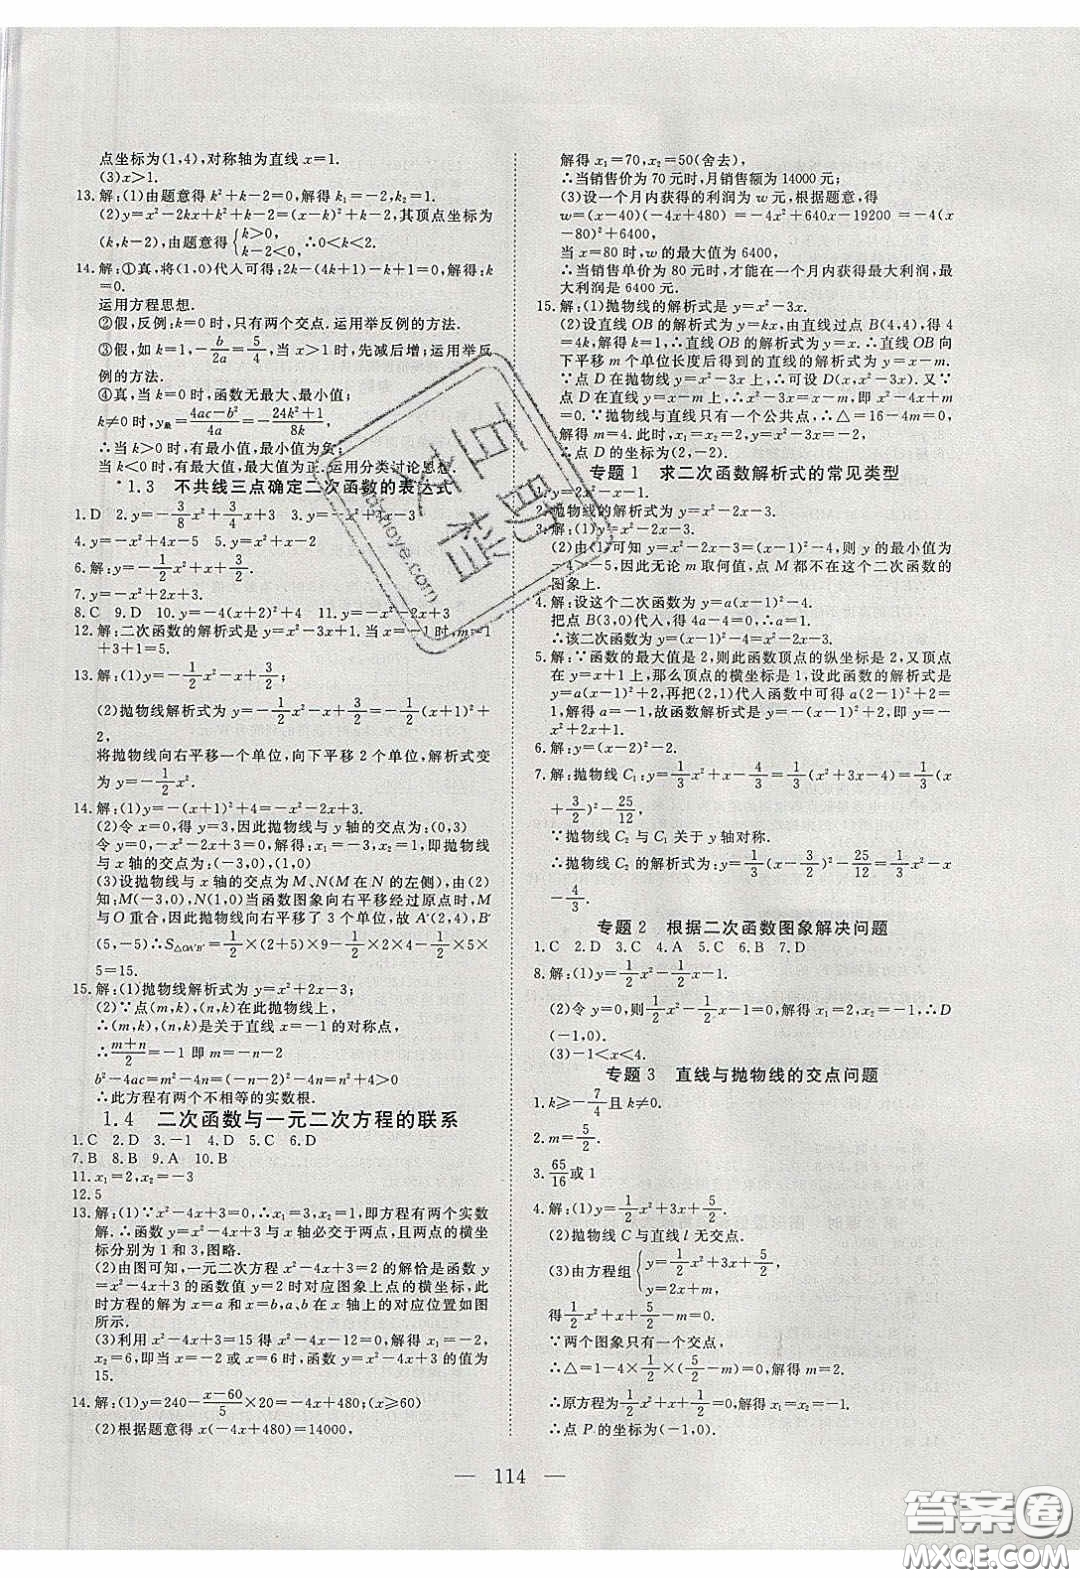 点坐标为(1,4),对称轴为直线 x=1.
(3)x>1.
13.解:(1)由题意得 k²+k-2=0,解得 k₁=-2,k₂=1.
(2)y=x²-2kx+k²+k-2=(x-k)²+k-2,其顶点坐标为
(k,k-2),由题意得{k>0, k-2<0, ∴0<k<2.
14.解:①真,将(1,0)代入可得:2k-(4k+1)-k+1=0,解得:k
=0.
运用方程思想.
②假,反例:k=0时,只有两个交点.运用举反例的方法.
③假,如 k=1,-b/2a=5/4,当 x>1时,先减后增;运用举反
例的方法.
④真,当 k=0 时,函数无最大、最小值;
k≠0时,y最=(4ac-b²)/4a=-(24k²+1)/8k,
∴当 k>0 时,有最小值,最小值为负;
当 k<0 时,有最大值,最大值为正.运用分类讨论思想.
*1.3 不共线三点确定二次函数的表达式
1.D 2.y=-3/8x²+3/4x+3 3.y=-x²+5
4.y=-x²+4x-5 5.y=-x²+4x
6.解:y=-1/2x²+x+3/2.
7.y=-x²-2x+3
8.C 9.D 10.y=-(x+2)²+4 11.y=-x²+2x+3
12.解:二次函数的解析式是 y=x²-3x+1.当 x=-1时,m=1
+3+1=5.
13.解:(1)y=-1/2x²-x+3/2.
(2)抛物线解析式为 y=-1/2x²-x+3/2=-1/2(x+1)²+
2,
将抛物线向右平移一个单位,向下平移 2 个单位,解析式变
为 y=-1/2x².
14.解:(1)y=-(x+1)²+4=-x²-2x+3.
(2)令 x=0,得 y=3,因此抛物线与 y 轴的交点为:(0,3)
令 y=0,-x²-2x+3=0,解得:x₁=-3,x₂=1,即抛物线
与 x 轴的交点为:(-3,0),(1,0)
(3)设抛物线与 x 轴的交点为 M、N(M 在 N 的左侧),由(2)
知:M(-3,0),N(1,0)当函数图象向右平移经过原点时,M
与 O 重合,因此抛物线向右平移了 3 个单位,故 A'(2,4),B'
(5,-5)∴S△OA'B'=1/2×(2+5)×9-1/2×2×4-1/2×5×
5=15.
15.解:(1)抛物线解析式为 y=x²+2x-3;
(2)∵点(m,k),(n,k)在此抛物线上,
∴(m,k),(n,k)是关于直线 x=-1 的对称点,
∴(m+n)/2=-1 即 m=-n-2
b²-4ac=m²-4n=(-n-2)²-4n=n²+4>0,
∴此方程有两个不相等的实数根.
1.4 二次函数与一元二次方程的联系
1.C 2.D 3.-1 4.D 5.C 6.D
7.B 8.B 9.A 10.B
11.x₁=2,x₂=-3
12.5
13.解:(1)∵x²-4x+3=0,∴x₁=3,x₂=1,即方程有两个实数
解.∴函数 y=x²-4x+3 与 x 轴必交于两点,且两点的横坐
标分别为 1 和 3,图略.
(2)由图可知,一元二次方程 x²-4x+3=2 的解恰是函数 y
=x²-4x+3 的函数值 y=2 时对应图象上点的横坐标,此
时方程的解为 x=a 和 x=b,a、b 在 x 轴上的对应位置如图
所示.
(3)利用 x²-4x+3=15 得 x²-4x-12=0,解得 x₁=-2,
x₂=6,即当 x=-2或 x=6 时,函数 y=x²-4x+3 的值为
15.
14.解:(1)y=240-(x-60)/5×20=-4x+480;(x≥60)
(2)根据题意得 x(-4x+480)=14000,
解得 x₁=70,x₂=50(舍去),
∴当销售价为 70 元时,月销售额为 14000 元;
(3)设一个月内获得的利润为 w 元,根据题意,得
w=(x-40)(-4x+480)=-4x²+640x-19200=-4(x
-80)²+6400,
当 x=80 时,w 的最大值为 6400
∴当销售单价为 80 元时,才能在一个月内获得最大利润,最
大利润是 6400 元.
15.解:(1)抛物线的解析式是 y=x²-3x.
(2)设直线 OB 的解析式为 y=kx,由直线过点 B(4,4),得 4
=4k,解得 k=1,∴直线 OB 的解析式为 y=x.∴直线 OB 向
下平移 m 个单位长度后得到的直线的解析式为 y=x-m.
∵点 D 在抛物线 y=x²-3x 上,∴可设 D(x,x²-3x).又∵
点 D 在直线 y=x-m 上,∴x²-3x=x-m,即 x²-4x+m=
0.∵抛物线与直线只有一个公共点,∴△=16-4m=0,
解得 m=4.此时,x₁=x₂=2,y=x²-3x=-2,
∴点 D 的坐标为(2,-2).
专题 1 求二次函数解析式的常见类型
1.y=2x²-x-1.
2.抛物线的解析式为 y=x²-2x-3.
3.解:(1)y=x²-4x.
(2)由(1)可知 y=x²-4x=(x-2)²-4,则 y 的最小值为
-4>-5,因此无论 m 取何值,点 M 都不在这个二次函数的
图象上.
4.解:设这个二次函数为 y=a(x-1)²-4.
把点 B(3,0)代入,得 4a-4=0,∴a=1.
∴该二次函数为 y=(x-1)²-4.
5.解:∵函数的最大值是 2,则此函数顶点的纵坐标是 2,又顶点
在 y=x+1 上,那么顶点的横坐标是 1,设此函数的解析式是
y=a(x-1)²+2,再把(2,1)代入函数中可得 a(2-1)²+2=
1,解得 a=-1,故函数解析式是 y=-(x-1)²+2,即 y=-
x²+2x+1.
6.解:y=(x-2)²-2.
7.解:抛物线 C₁:y=1/3x²+x-4/3=1/3(x²+3x-4)=1/3(x
+3/2)²-25/12,
∵抛物线 C₂ 与 C₁ 关于 y 轴对称.
∴抛物线 C₂ 的解析式为:y=1/3(x-3/2)²-25/12=1/3x²-x
-4/3.
专题 2 根据二次函数图象解决问题
1.C 2.D 3.C 4.A 5.C 6.B 7.D
8.解:(1)y=1/2x²-1/2x-1.
(2)令 y=0,则1/2x²-1/2x-1=0,解得 x₁=2,x₂=-1,∴D
(-1,0).
(3)-1<x<4.
专题 3 直线与抛物线的交点问题
1.k≥-7/4且 k≠0.
2.m=5/2.
3.65/16或 1
4.解:(1)y=1/2x²+3x+5/2.
(2)抛物线 C 与直线 l 无交点.
(3)由方程组{y=1/2x²+3x+5/2, y=2x+m,
得1/2x²+x+5/2-m=0.
∵两个图象只有一个交点,
∴△=1-4×1/2×(5/2-m)=0,解得 m=2.
∴原方程为1/2x²+x+1/2=0,解得 x=-1.
∴点 P 的坐标为(-1,0).
— 114 —
答案卷
MXQE.COM